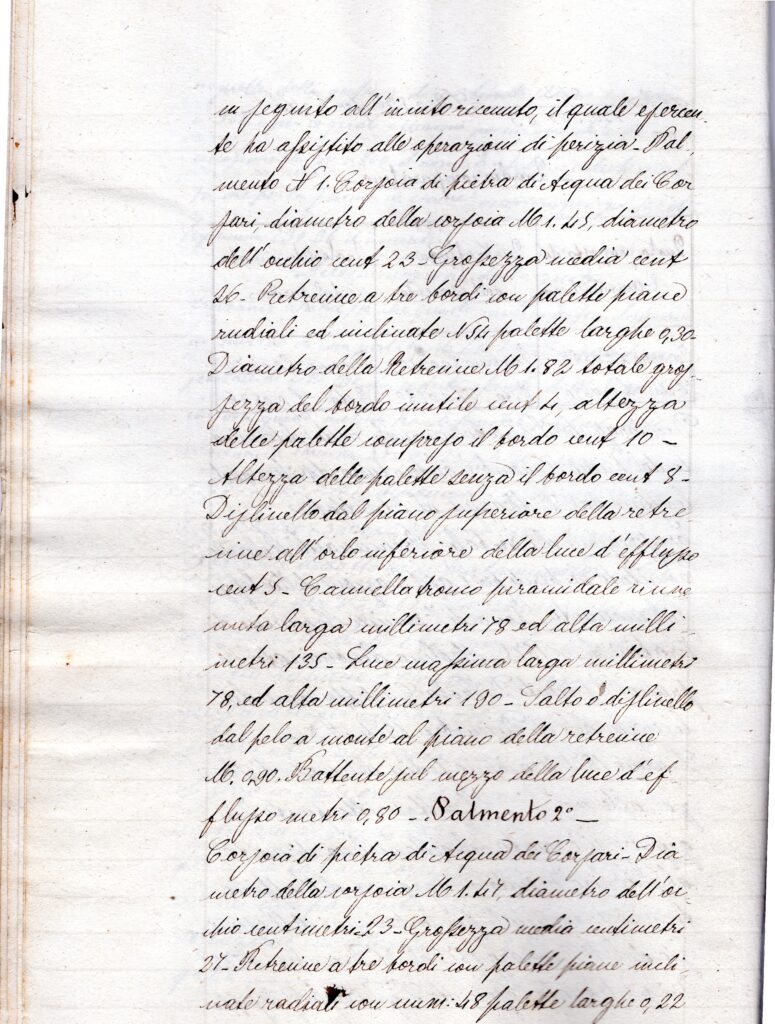 in seguito all'invito ricevuto, il quale esercen-
te ha assistito alle operazioni di perizia - Pal,
mento N 1. Corsoia di pietra di Acqua dei Cor
sari, diametro della corsoia M 1.45, diametro
dell'occhio cent 23 - Grossezza media cent
26 - Retrecine a tre bordi con palette piane
radiali ed inclinate N 54 palette larghe 0,30-
Diametro della Retrecine M 1.82 totale gros-
sezza del bordo inutile cent 4, altezza
delle palette compreso il bordo cent 10 -
Altezza delle palette senza il bordo cent 8-
Dislivello dal piano superiore della retre
cine all'orlo inferiore della luce d'efflusso
cent 5 - Cannella tronco piramidale rinve
nuta larga millimetri 78 ed alta milli-
metri 135 - Luce massima larga millimetri
78, ed alta millimetri 190 - Salto o dislivello
dal pelo a monte al piano della retrecine
M. 0,90. Battente sul mezzo della luce d'ef-
flusso metri 0,80 - Palmento 2° -
Corsoia di pietra di Acqua dei Corsari - Dia
metro della corsoia M 1.47, diametro dell'oc-
chio centimetri 23 - Grossezza media centimetri
27 - Retrecine a tre bordi con palette piane incli
nate radiali con num: 48 palette larghe 0,22